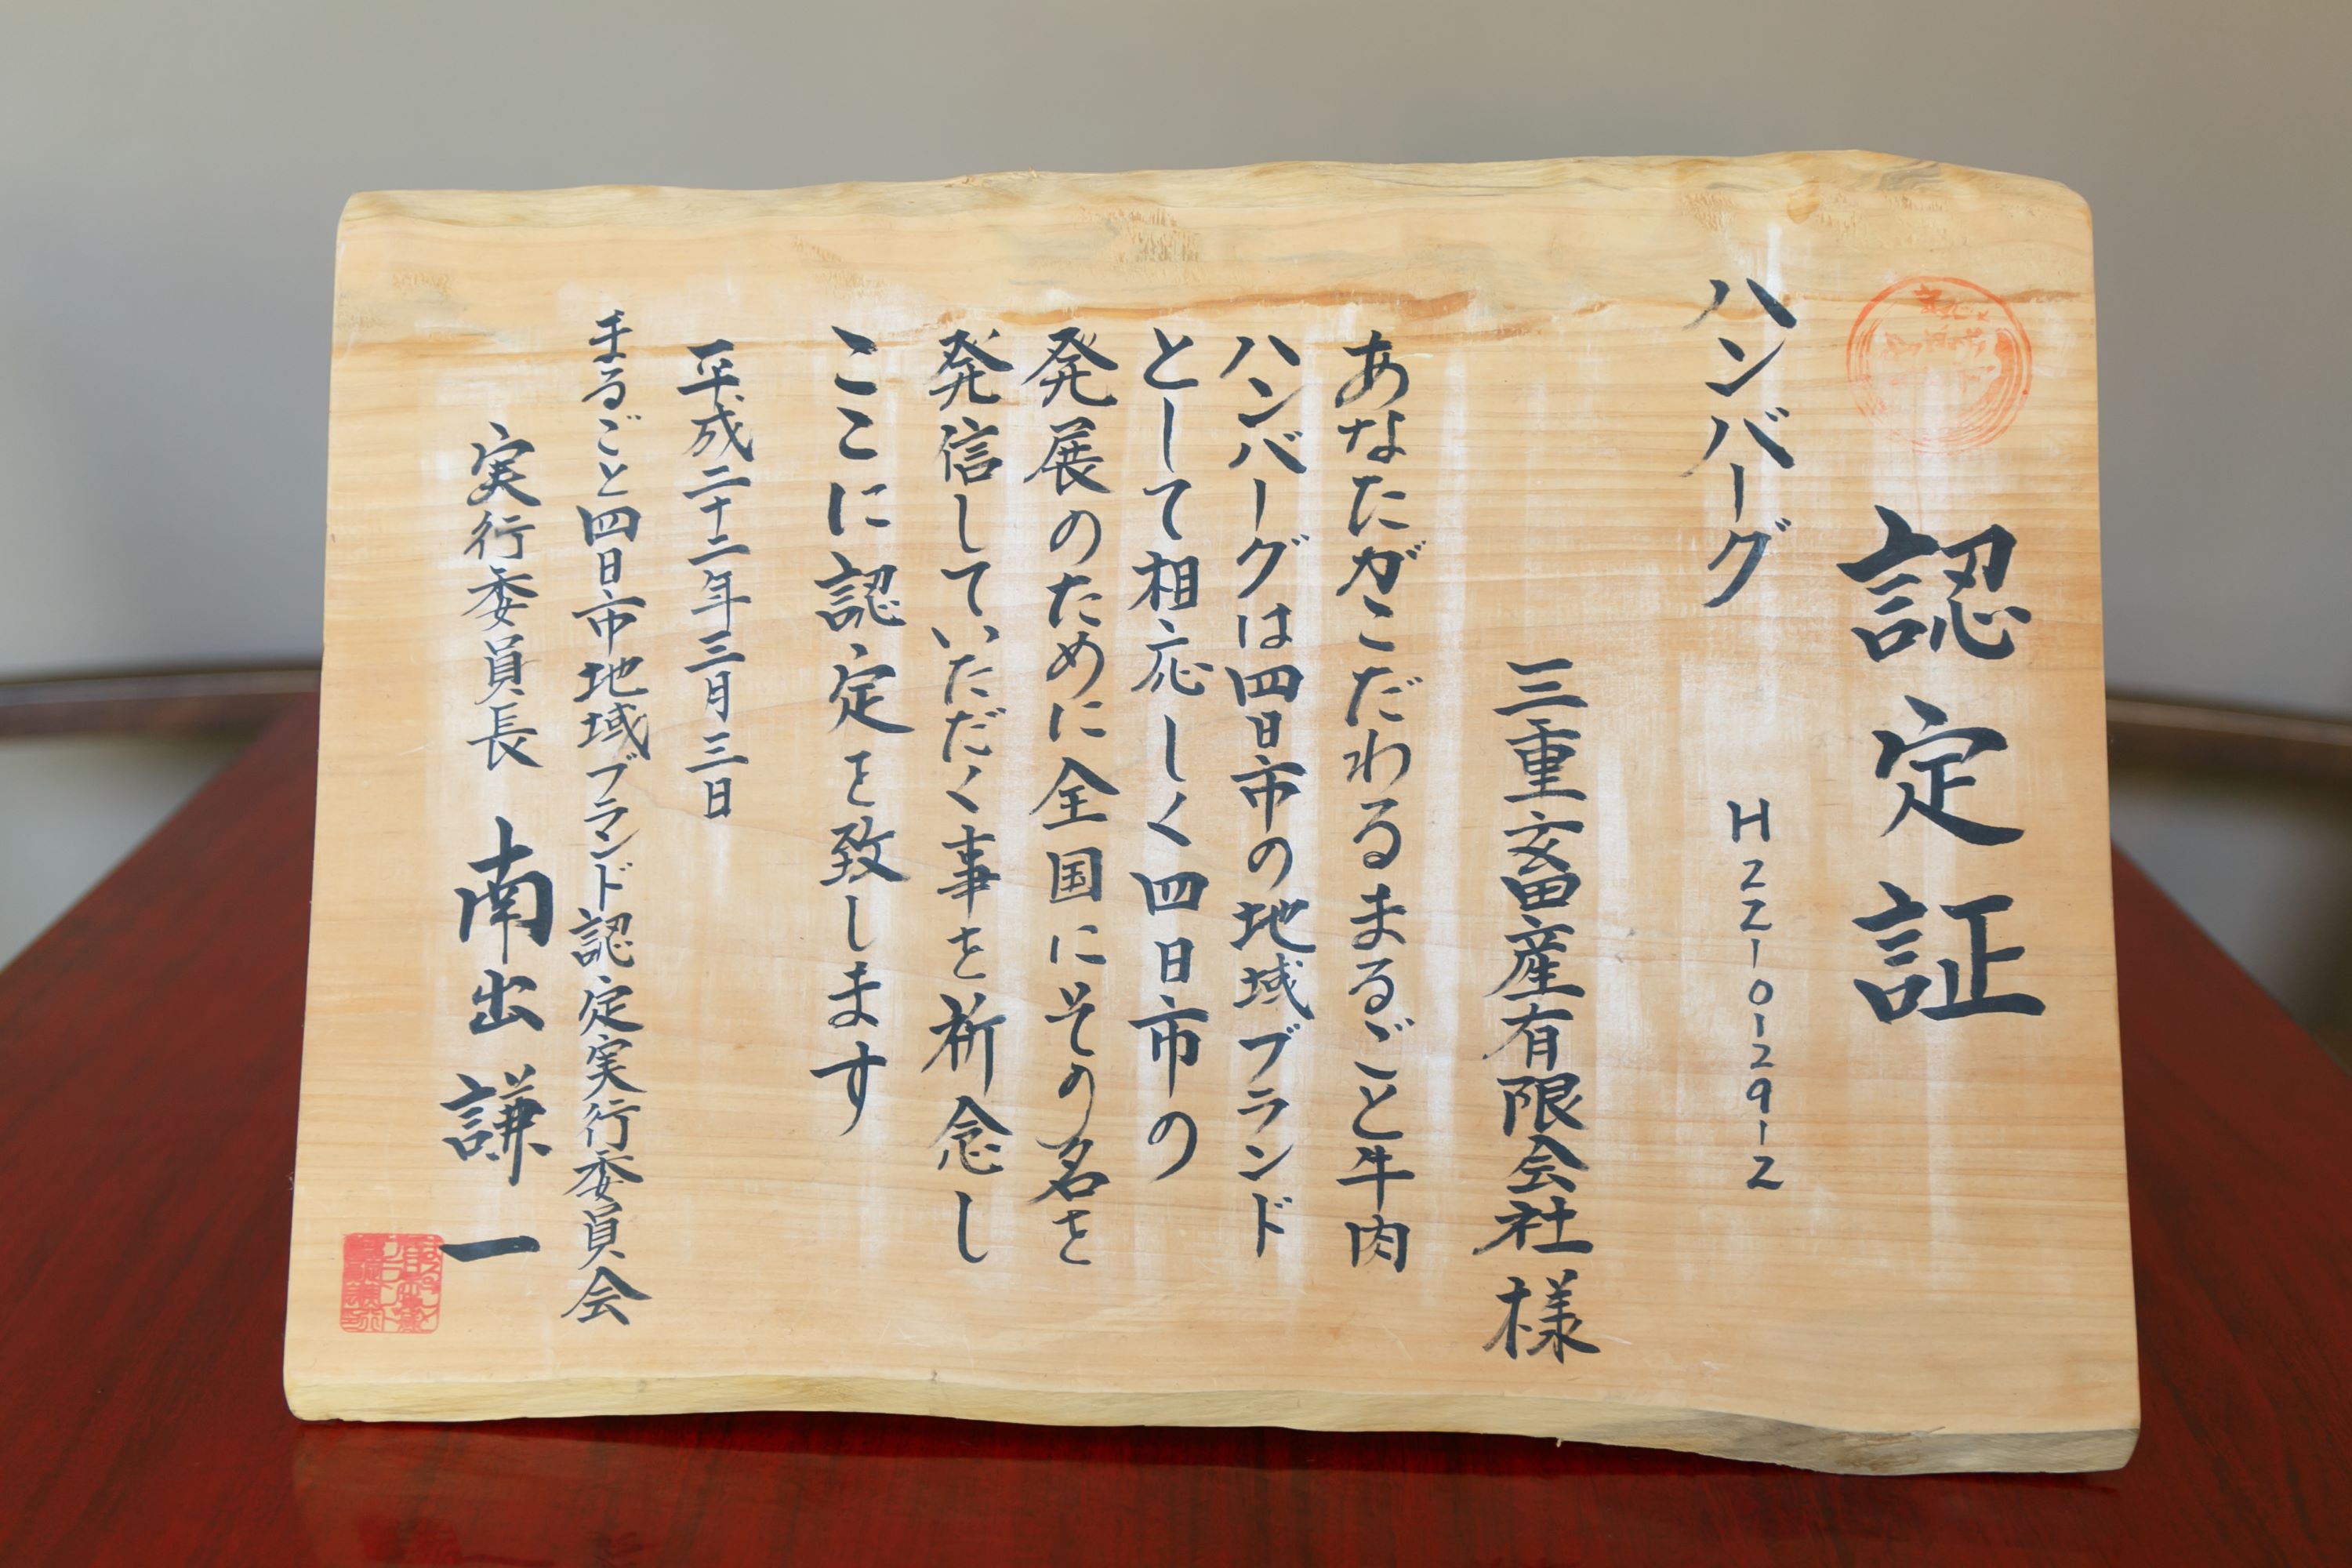 認定証
ハンバーグ H22-0-29-2
三重畜産有限会社様
あなたがこだわるまるごと牛肉
ハンバーグは四日市の地域ブランド
として相応しく四日市の
発展のために全国にその名を
発信していただく事を祈念し
ここに認定を致します
平成二十二年三月三日
まるごと四日市地域ブランド認定実行委員会
実行委員長 南出謙一